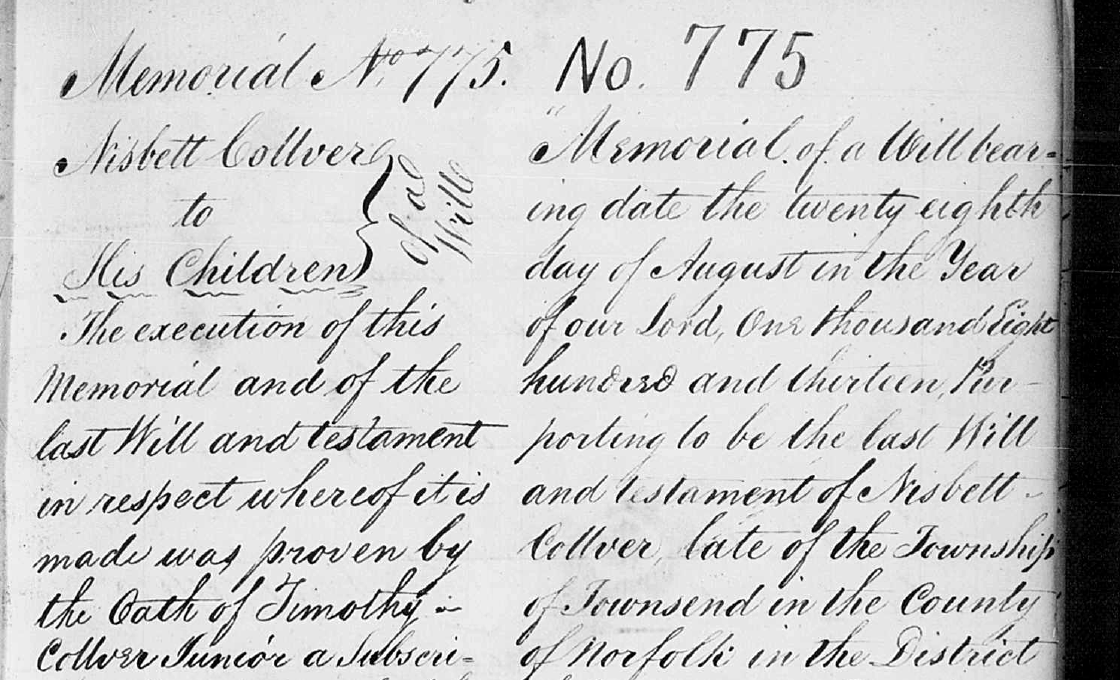 Memorial No. 775.
Nisbett Collver
to
His Children
of a
Will
The execution of this
Memorial and of the
last Will and testament
in respect whereof it is
made was proven by
the Oath of Timothy
Collver Junior a Subscri-
No. 775
Memorial of a Will bear-
ing date the twenty eighth
day of August in the Year
of our Lord, One thousand Eight
hundred and thirteen, Pur-
porting to be the last Will
and testament of Nisbett
Collver, late of the Township
of Townsend in the County
of Norfolk in the District